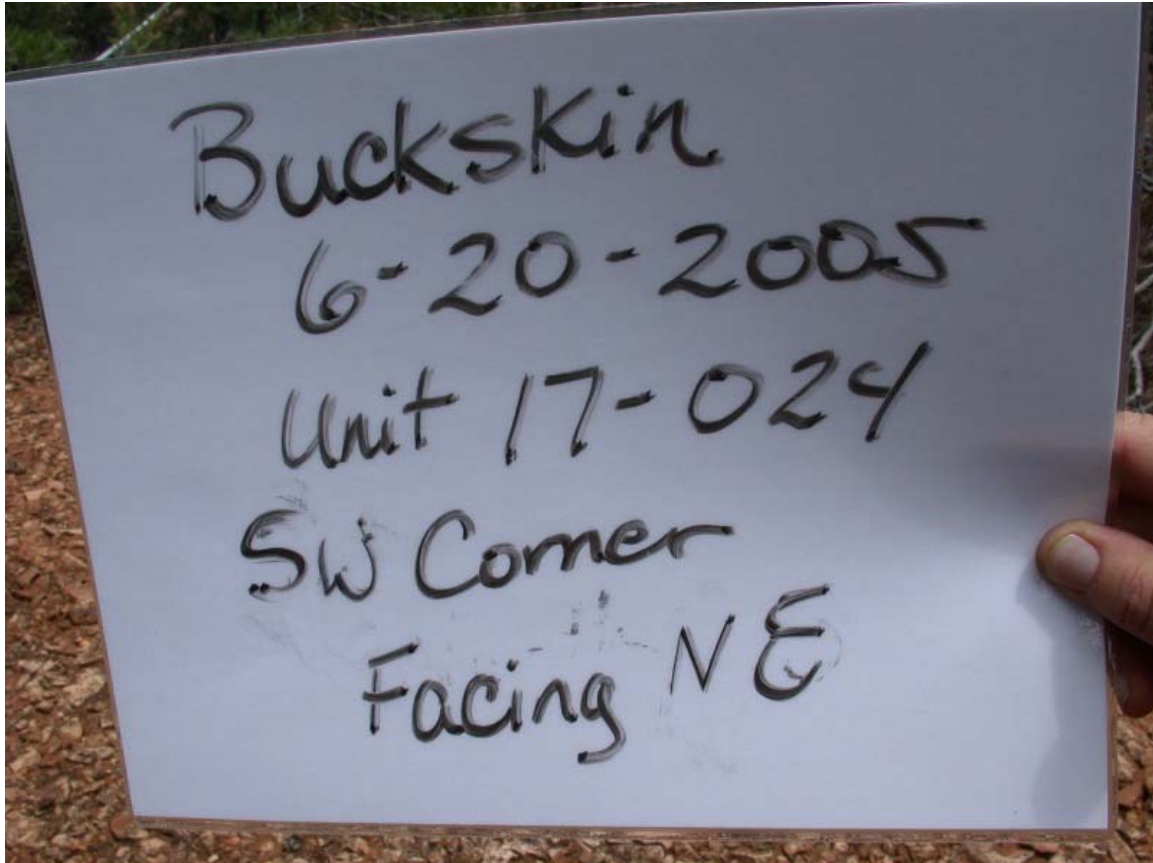 Buckskin
6-20-2005
Unit 17-024
SW Corner
Facing NE